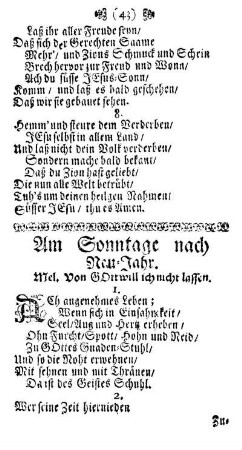 (43)
Laß ihr aller Freude seyn/
Daß sich der Gerechten Saame
Mehr'/ und Zions Schmuck und Schein
Brech hervor zur Freud und Wonn/
Ach du süsse JEsus-Sonn/
Komm/ und laß es bald geschehen/
Daß wir sie gebauet sehen.
8.
Hemm' und steure dem Verderben/
JEsu selbst in allem Land/
Und laß nicht dein Volk verderben/
Sondern mache bald bekant/
Daß du Zion hast geliebt/
Die nun alle Welt betrübt/
Tuh's um deinen heilgen Nahmen/
Süsser JEsu/ thu es Amen.
Am Sonntage nach
Neu-Jahr.
Mel. Von GOtt will ich nicht lassen.
1.
ACh angenehmes Leben;
Wenn sich in Einsahmkeit/
Seel/ Aug und Hertz erheben/
Ohn Furcht/ Spott/ Hohn und Neid/
Zu GOttes Gnaden-Stuhl/
Und so die Noht erwehnen/
Mit sehnen und mit Thränen/
Da ist des Geistes Schuhl.
2.
Wer seine Zeit hiernieden
Zu-